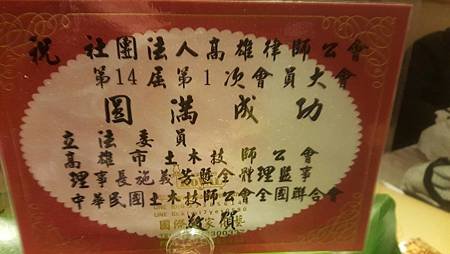 祝 社團法人高雄律師公會
第14屆第1次會員大會
圓滿成功
立法委員
高雄市土木技師公會
理事長施義芳暨全體理監事
中華民國土木技師公會全國聯合會
敬賀